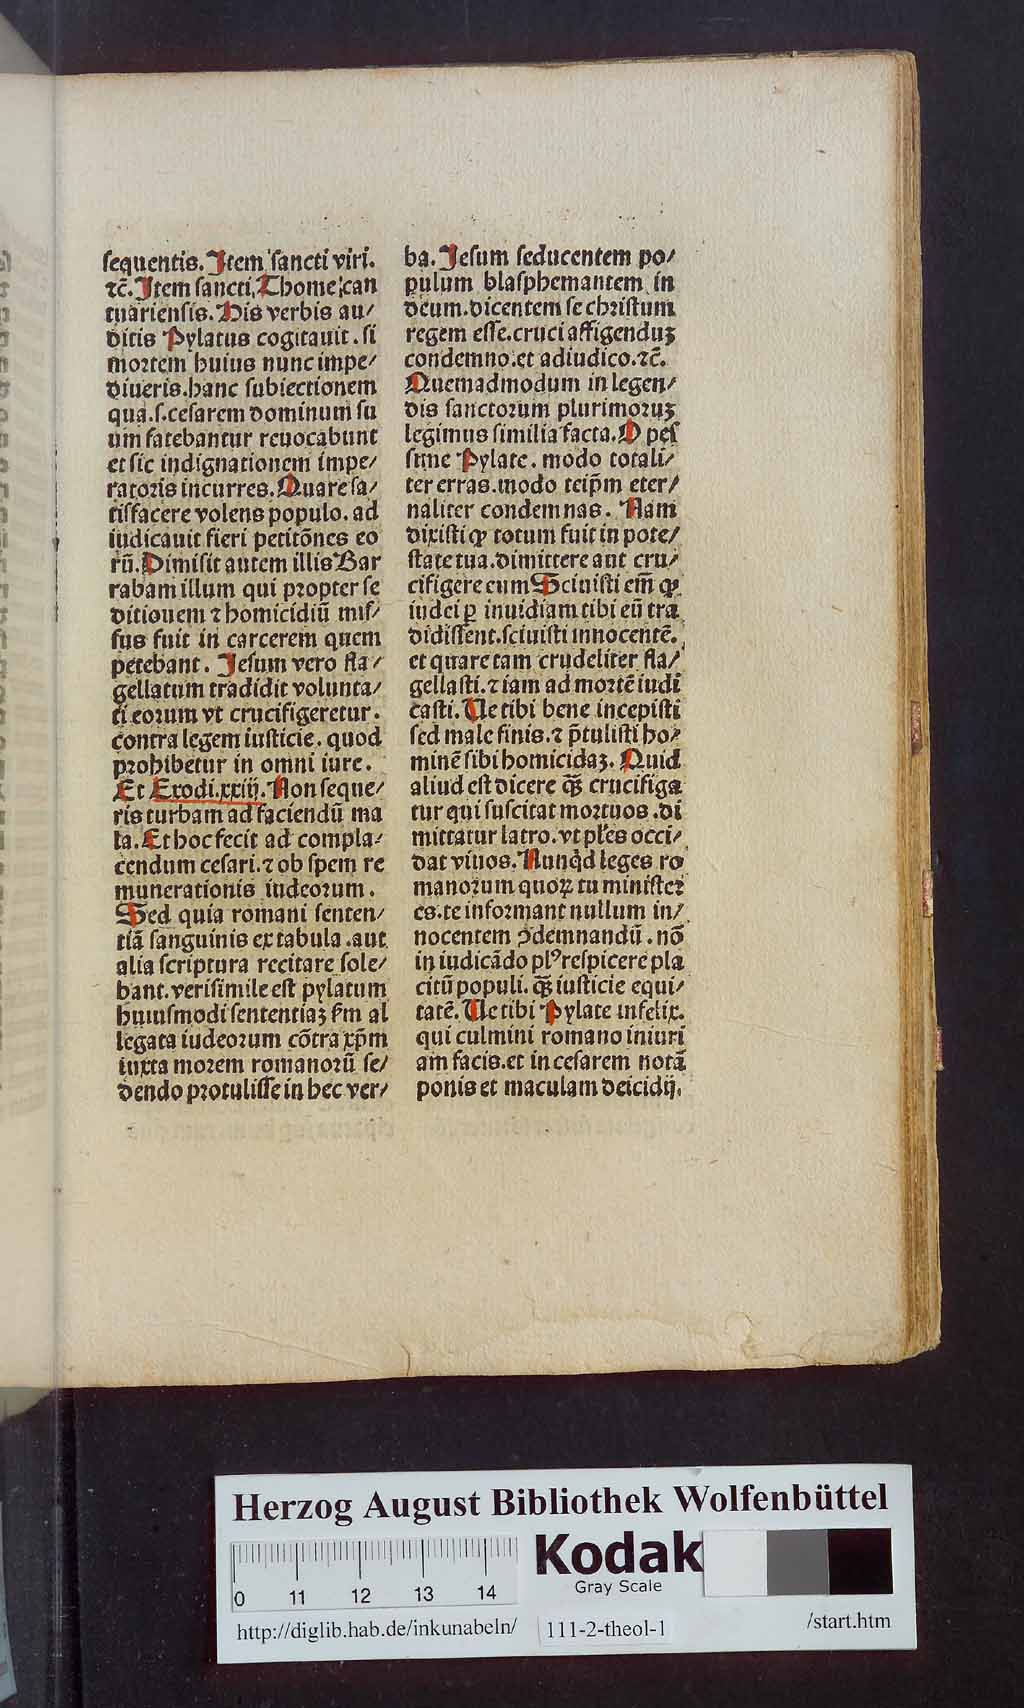 sequentis. Item sancti viri.
⁊c̄. Item sancti, Thome can
tuariensis. His verbis au/
ditis Pylatus cogitauit. si
mortem huius nunc impe/
diueris. hanc subiectionem
qua. s. cesarem dominum su
um fatebantur reuocabunt
et sic indignationem impe/
ratoris incurres. Quare sa/
tisfacere volens populo. ad
iudicauit fieri petitōnes eo
rū. Dimisit autem illis Bar
rabam illum qui propter se
ditionem ⁊ homicidiū mis/
sus fuit in carcerem quem
petebant. Jesum vero fla/
gellatum tradidit volunta/
ti eorum vt crucifigeretur.
contra legem iusticie. quod
prohibetur in omni iure.
Et Exodi. xxiij. Non seque/
ris turbam ad faciendū ma
la. Et hoc fecit ad compla/
cendum cesari. ⁊ ob spem re
munerationis iudeorum.
Sed quia romani senten/
tiā sanguinis ex tabula. aut
alia scriptura recitare sole/
bant. verisimile est pylatum
huiusmodi sententiaꝫ s̄m al
legata iudeorum cōtra xp̄m
iuxta morem romanorū se/
dendo protulisse in hec ver/
ba. Jesum seducentem po/
pulum blasphemantem in
deum. dicentem se christum
regem esse. cruci affigenduꝫ
condemno. et adiudico. ⁊c̄.
Quemadmodum in legen/
dis sanctorum plurimoruꝫ
legimus similia facta. O pes
sime Pylate. modo totali/
ter erras. modo teip̄m eter/
naliter condemnas. Nam
dixisti ꝙ totum fuit in pote/
state tua. dimittere aut cru/
cifigere eum Sciuisti em̄ ꝙ
iudei ꝑ inuidiam tibi eū tra
didissent. sciuisti innocentē.
et quare tam crudeliter fla/
gellasti. ⁊ iam ad mortē iudi
casti. Ue tibi bene incepisti
sed male finis. ⁊ p̄tulisti ho/
minē sibi homicidaꝫ. Quid
aliud est dicere q̄ꝫ crucifiga
tur qui suscitat mortuos. di
mittatur latro. vt pl̄es occi/
dat viuos. Nunq̇d leges ro
manorum quoꝝ tu minister
es. te informant nullum in/
nocentem ꝯdemnandū. nō
in iudicādo plꝰ respicere pla
citū populi. q̄ꝫ iusticie equi/
tatē. Ue tibi Pylate infelix.
qui culmini romano iniuri
am facis. et in cesarem notā
ponis et maculam deicidij.
Herzog August Bibliothek Wolfenbüttel
0 11 12 13 14
Kodak
Gray Scale
http://diglib.hab.de/inkunabeln/ 111-2-theol-1 /start.htm